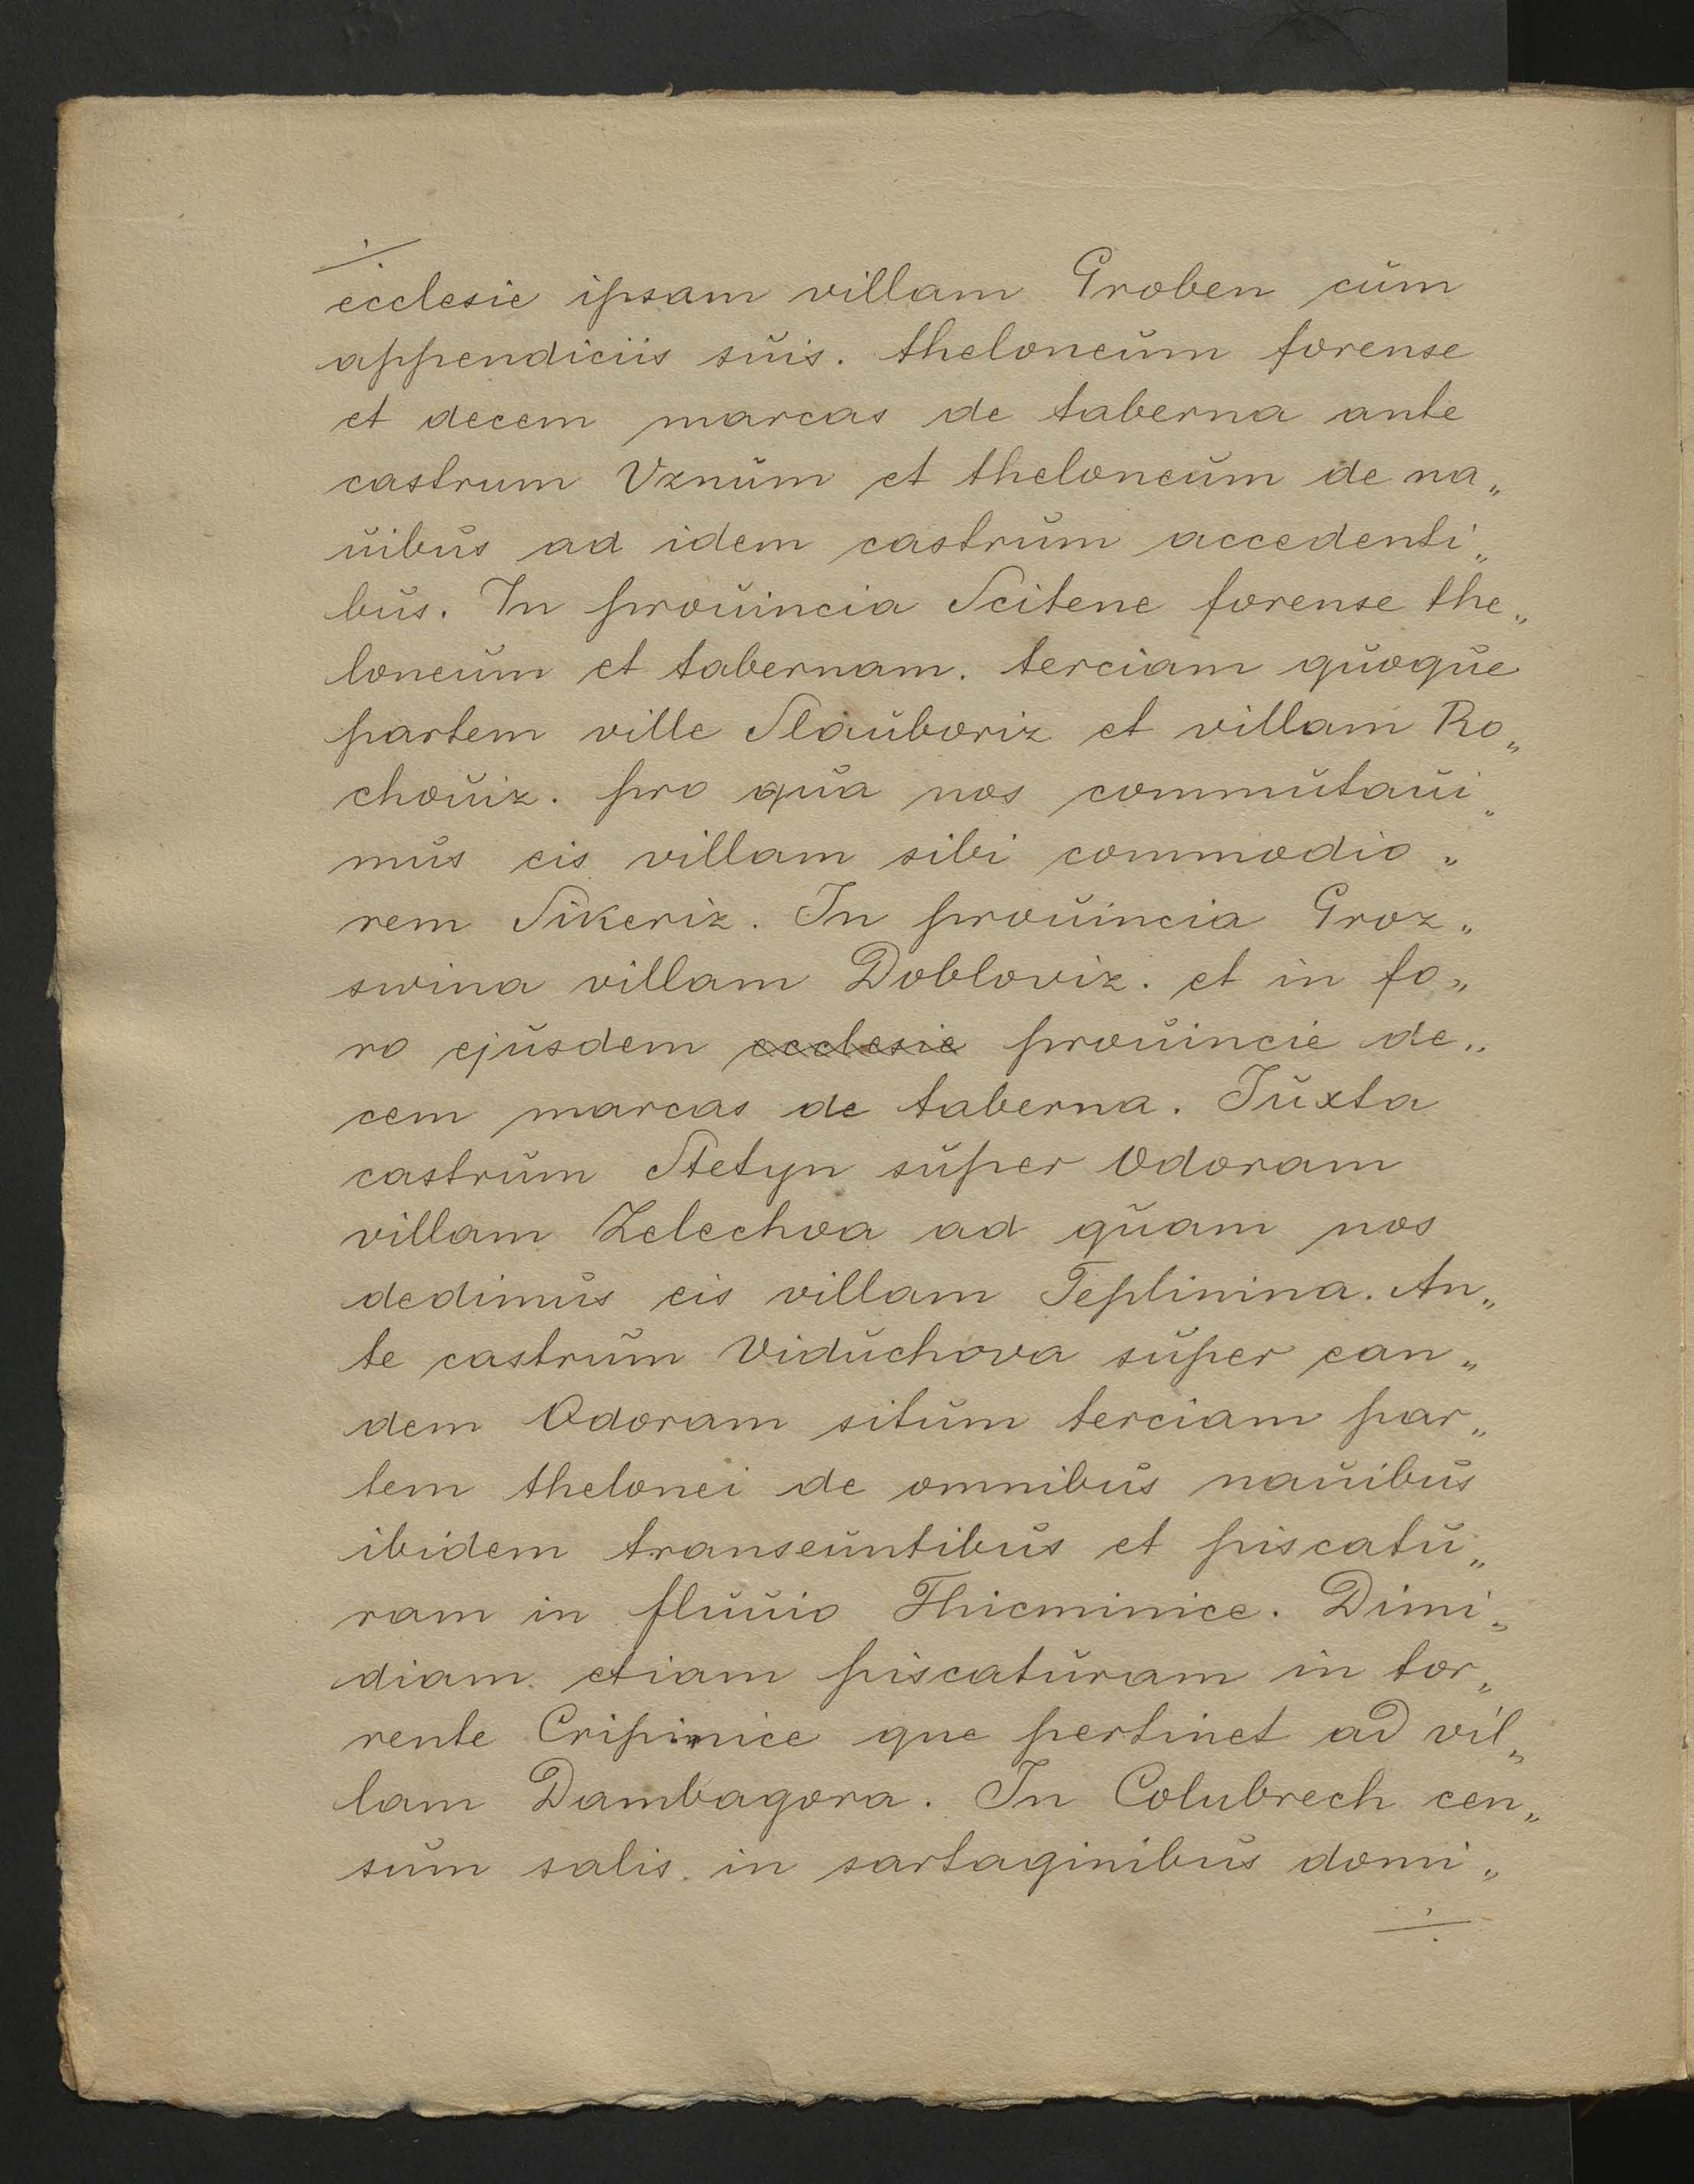 ecclesie ipsam villam Groben cum
appendiciis suis. theloneum forense
et decem marcas de taberna ante
castrum Vznum et theloneum de na„
uibus ad idem castrum accedenti„
bus. In prouincia Scitene forense the„
loneum et tabernam. terciam quoque
partem ville Slauboriz et villam Ro„
chouiz. pro qua nos commutaui„
mus eis villam sibi commodio„
rem Sikeriz. In prouincia Groz„
swina villam Dobloviz. et in fo„
ro ejusdem ecclesie prouincie de„
cem marcas de taberna. Juxta
castrum Stetyn super Odoram
villam Zelechoa ad quam nos
dedimus eis villam Teplinina. An„
te castrum Viduchova super ean„
dem Odoram situm terciam par„
tem thelonei de omnibus nauibus
ibidem transeuntibus et piscatu„
ram in fluuio Thicminice. Dimi„
diam etiam piscaturam in tor„
rente Cripinice que pertinet ad vil„
lam Dambagora. In Colubrech cen„
sum salis in sartaginibus domi„